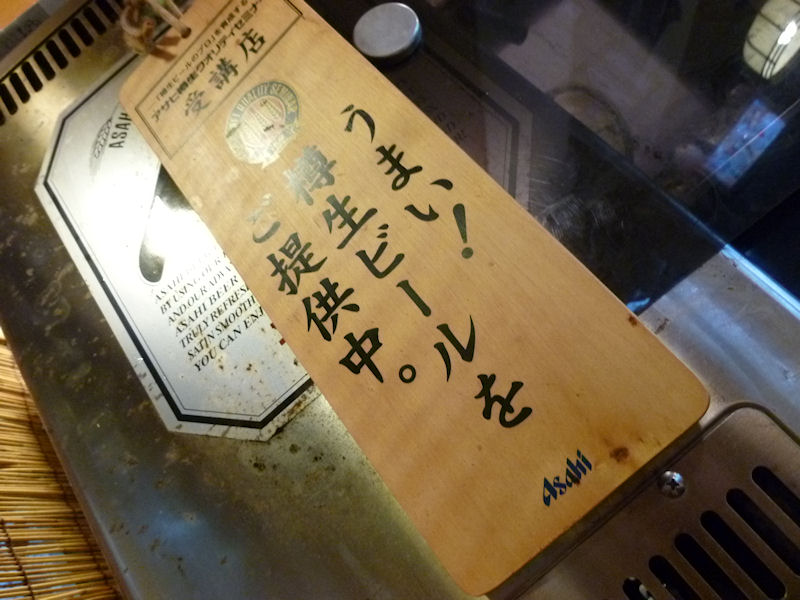 「樽生ビールのプロ」を育成する
アサヒ樽生クオリティセミナー
受講店
うまい!
樽生ビールを
ご提供中。
Asahi
ASAH
ASAHI BEER
BY USING OUR
AND OUR ADVA
ASAHI BEER
TRULY REFRE
SATIN SMOOTH
YOU CAN EN